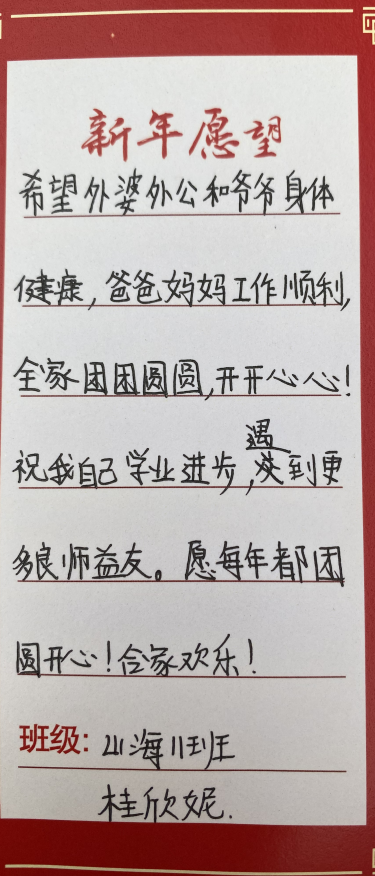 新年愿望
希望外婆外公和爷爷身体
健康，爸爸妈妈工作顺利，
全家团团圆圆，开开心心！
祝我自己学业进步，遇到更
多良师益友。愿每年都团
圆开心！合家欢乐！
班级：山海11班
桂欣妮.